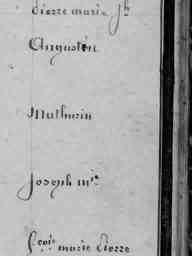 pierre marie Jh
Augustin
Mathurin
Joseph mie
marie pierre